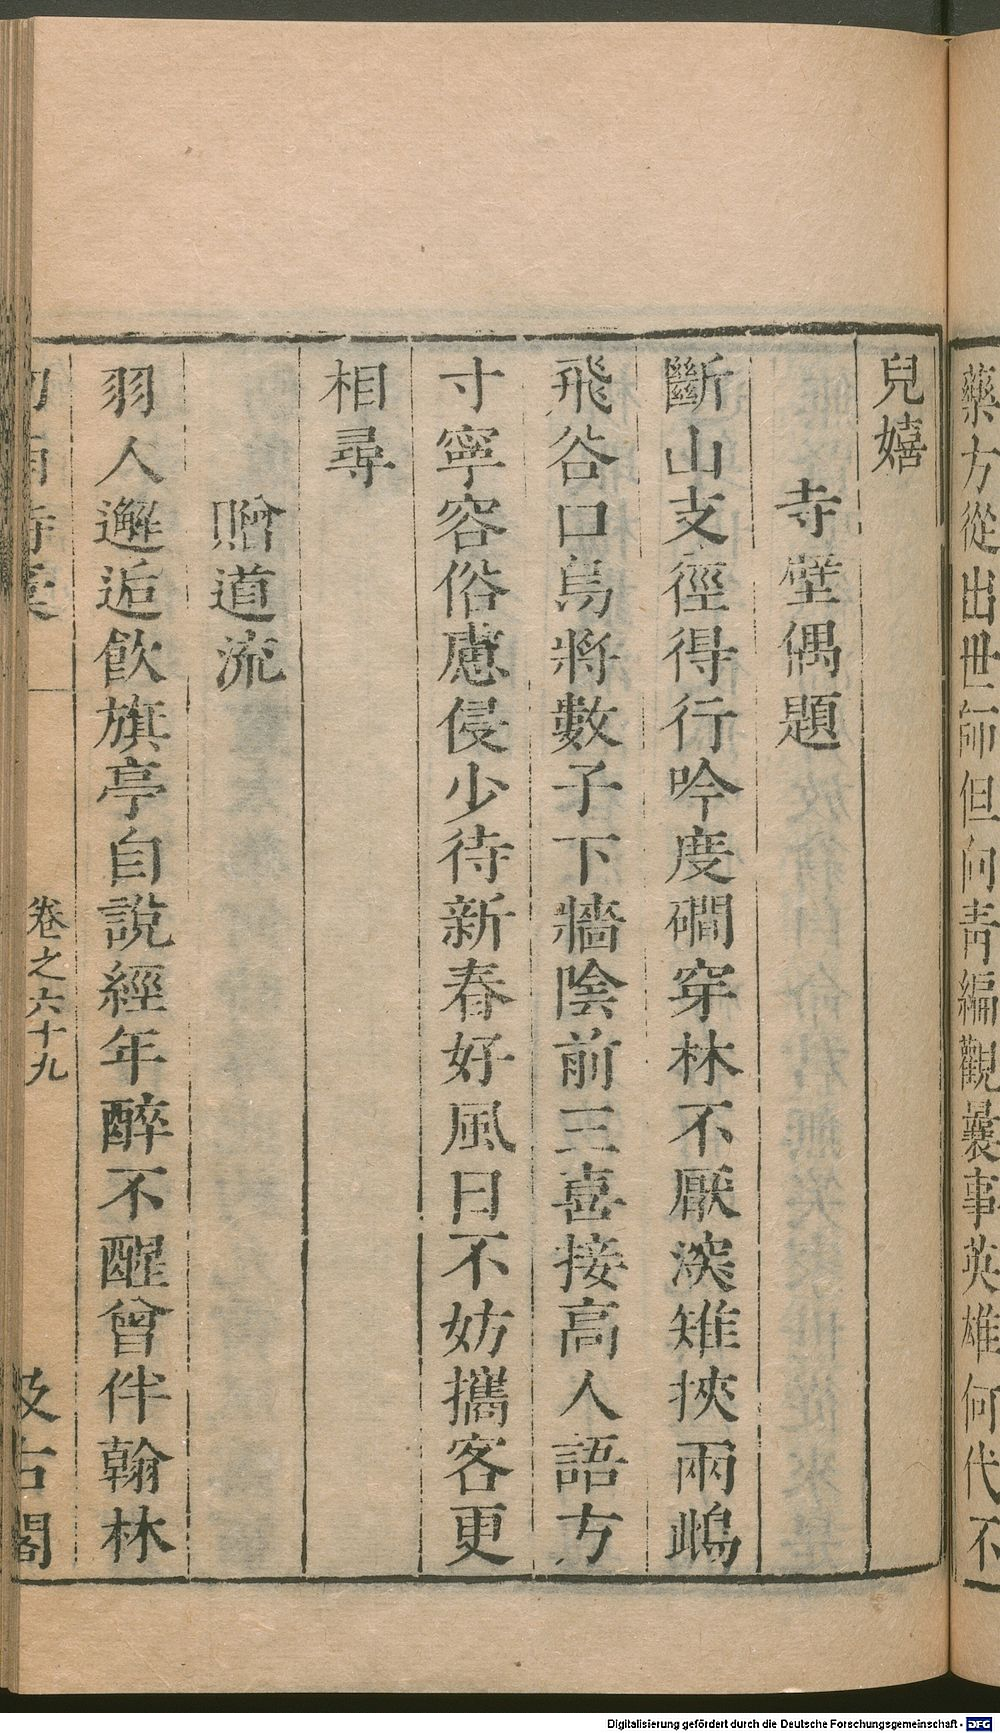 藥方從出世師但向青編觀曩事英雄何代不
兒嬉
寺壁偶題
斷山支徑得行吟度磵穿林不厭深雉挾兩雌
飛谷口烏將數子下牆陰前三喜接高人語方
寸寧容俗慮侵少待新春好風日不妨攜客更
相尋
贈道流
羽人邂逅飲旗亭自說經年醉不醒曾伴翰林
卷之六十九
汲古閣
Digitalisierung gefördert durch die Deutsche Forschungsgemeinschaft - DFG